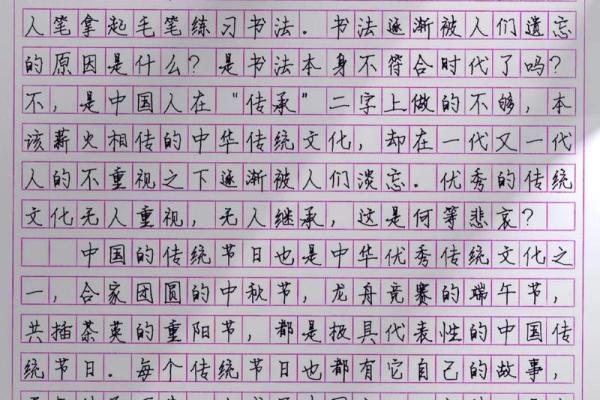 人笔拿起毛笔练习书法.书法逐渐被人们遗忘
的原因是什么?是书法本身不符合时代了吗?
不,是中国人在"传承"二字上做的不够,本
该薪火相传的中华传统文化,却在一代又一代
人的不重视之下逐渐被人们淡忘.优秀的传统
文化无人重视,无人继承,这是何等悲哀?
中国的传统节日也是中华优秀传统文化之
一,合家团圆的中秋节,龙舟竞赛的端午节,
共插茶萸的重阳节,都是极具代表性的中国传
统节日.每个传统节日也都有它自己的故事,